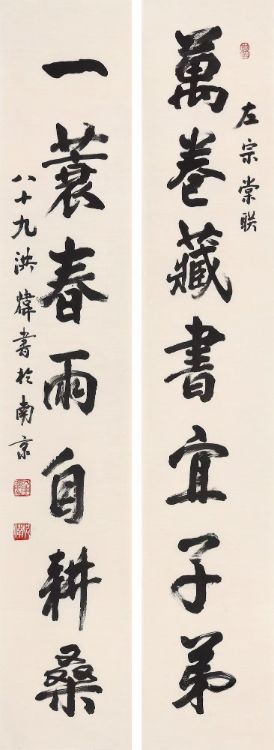 萬卷藏書宜子弟
左宗棠联
一蓑春雨自耕桑
八十九洪煒書於南京